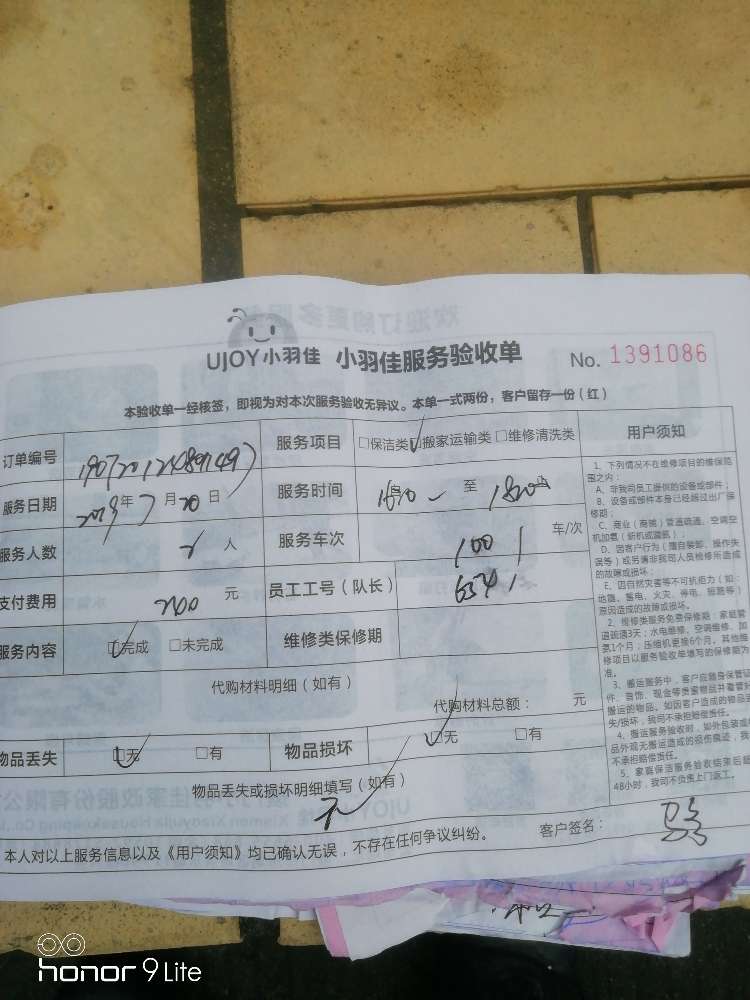 UJOY小羽佳 小羽佳服务验收单 No. 1391086
本验收单一经核签，即视为对本次服务验收无异议。本单一式两份，客户留存一份（红）
订单编号 服务项目 □保洁类 □搬家运输类 □维修清洗类 用户须知
服务日期 2019年7月20日 服务时间 至
服务人数 2人 服务车次 车/次
支付费用 200元 员工工号（队长）
服务内容 □完成 □未完成 维修类保修期
代购材料明细（如有）
代购材料总额： 元
物品丢失 □无 □有 物品损坏 □无 □有
物品丢失或损坏明细填写（如有）
无
本人对以上服务信息以及《用户须知》均已确认无误，不存在任何争议纠纷。 客户签名：
1、下列情况不在维修项目的维保范
围之内：
A、非我司员工提供的设备或部件；
B、设备或部件本身已经超过出厂保
修期；
C、商业（商铺）管道疏通、空调空
机加氨（新机或漏氨）；
D、因客户行为（擅自装卸、操作失
误等）或另请非我司人员检修所造成
的故障或损坏；
E、因自然灾害等不可抗力（如：
地震、雷电、火灾、停电、短路等）
原因造成的故障或损坏。
2、维修类服务免费保修期：家庭管
道疏通3天；水电维修、空调维修、加
氨1个月；压缩机更换6个月。其他维
修项目以服务验收单填写的保修期为
准。
3、搬运服务中，客户应随身保管证
件、首饰、现金等贵重物品并看管好
搬运的物品。如因客户造成的物品丢
失/损坏，我司不承担赔偿责任。
4、搬运服务验收时，如外包装或物
品外观无搬运造成的损伤痕迹，我
不承担赔偿责任。
5、家庭保洁服务验收结束后超
48小时，我司不负责上门返工。
honor 9 Lite